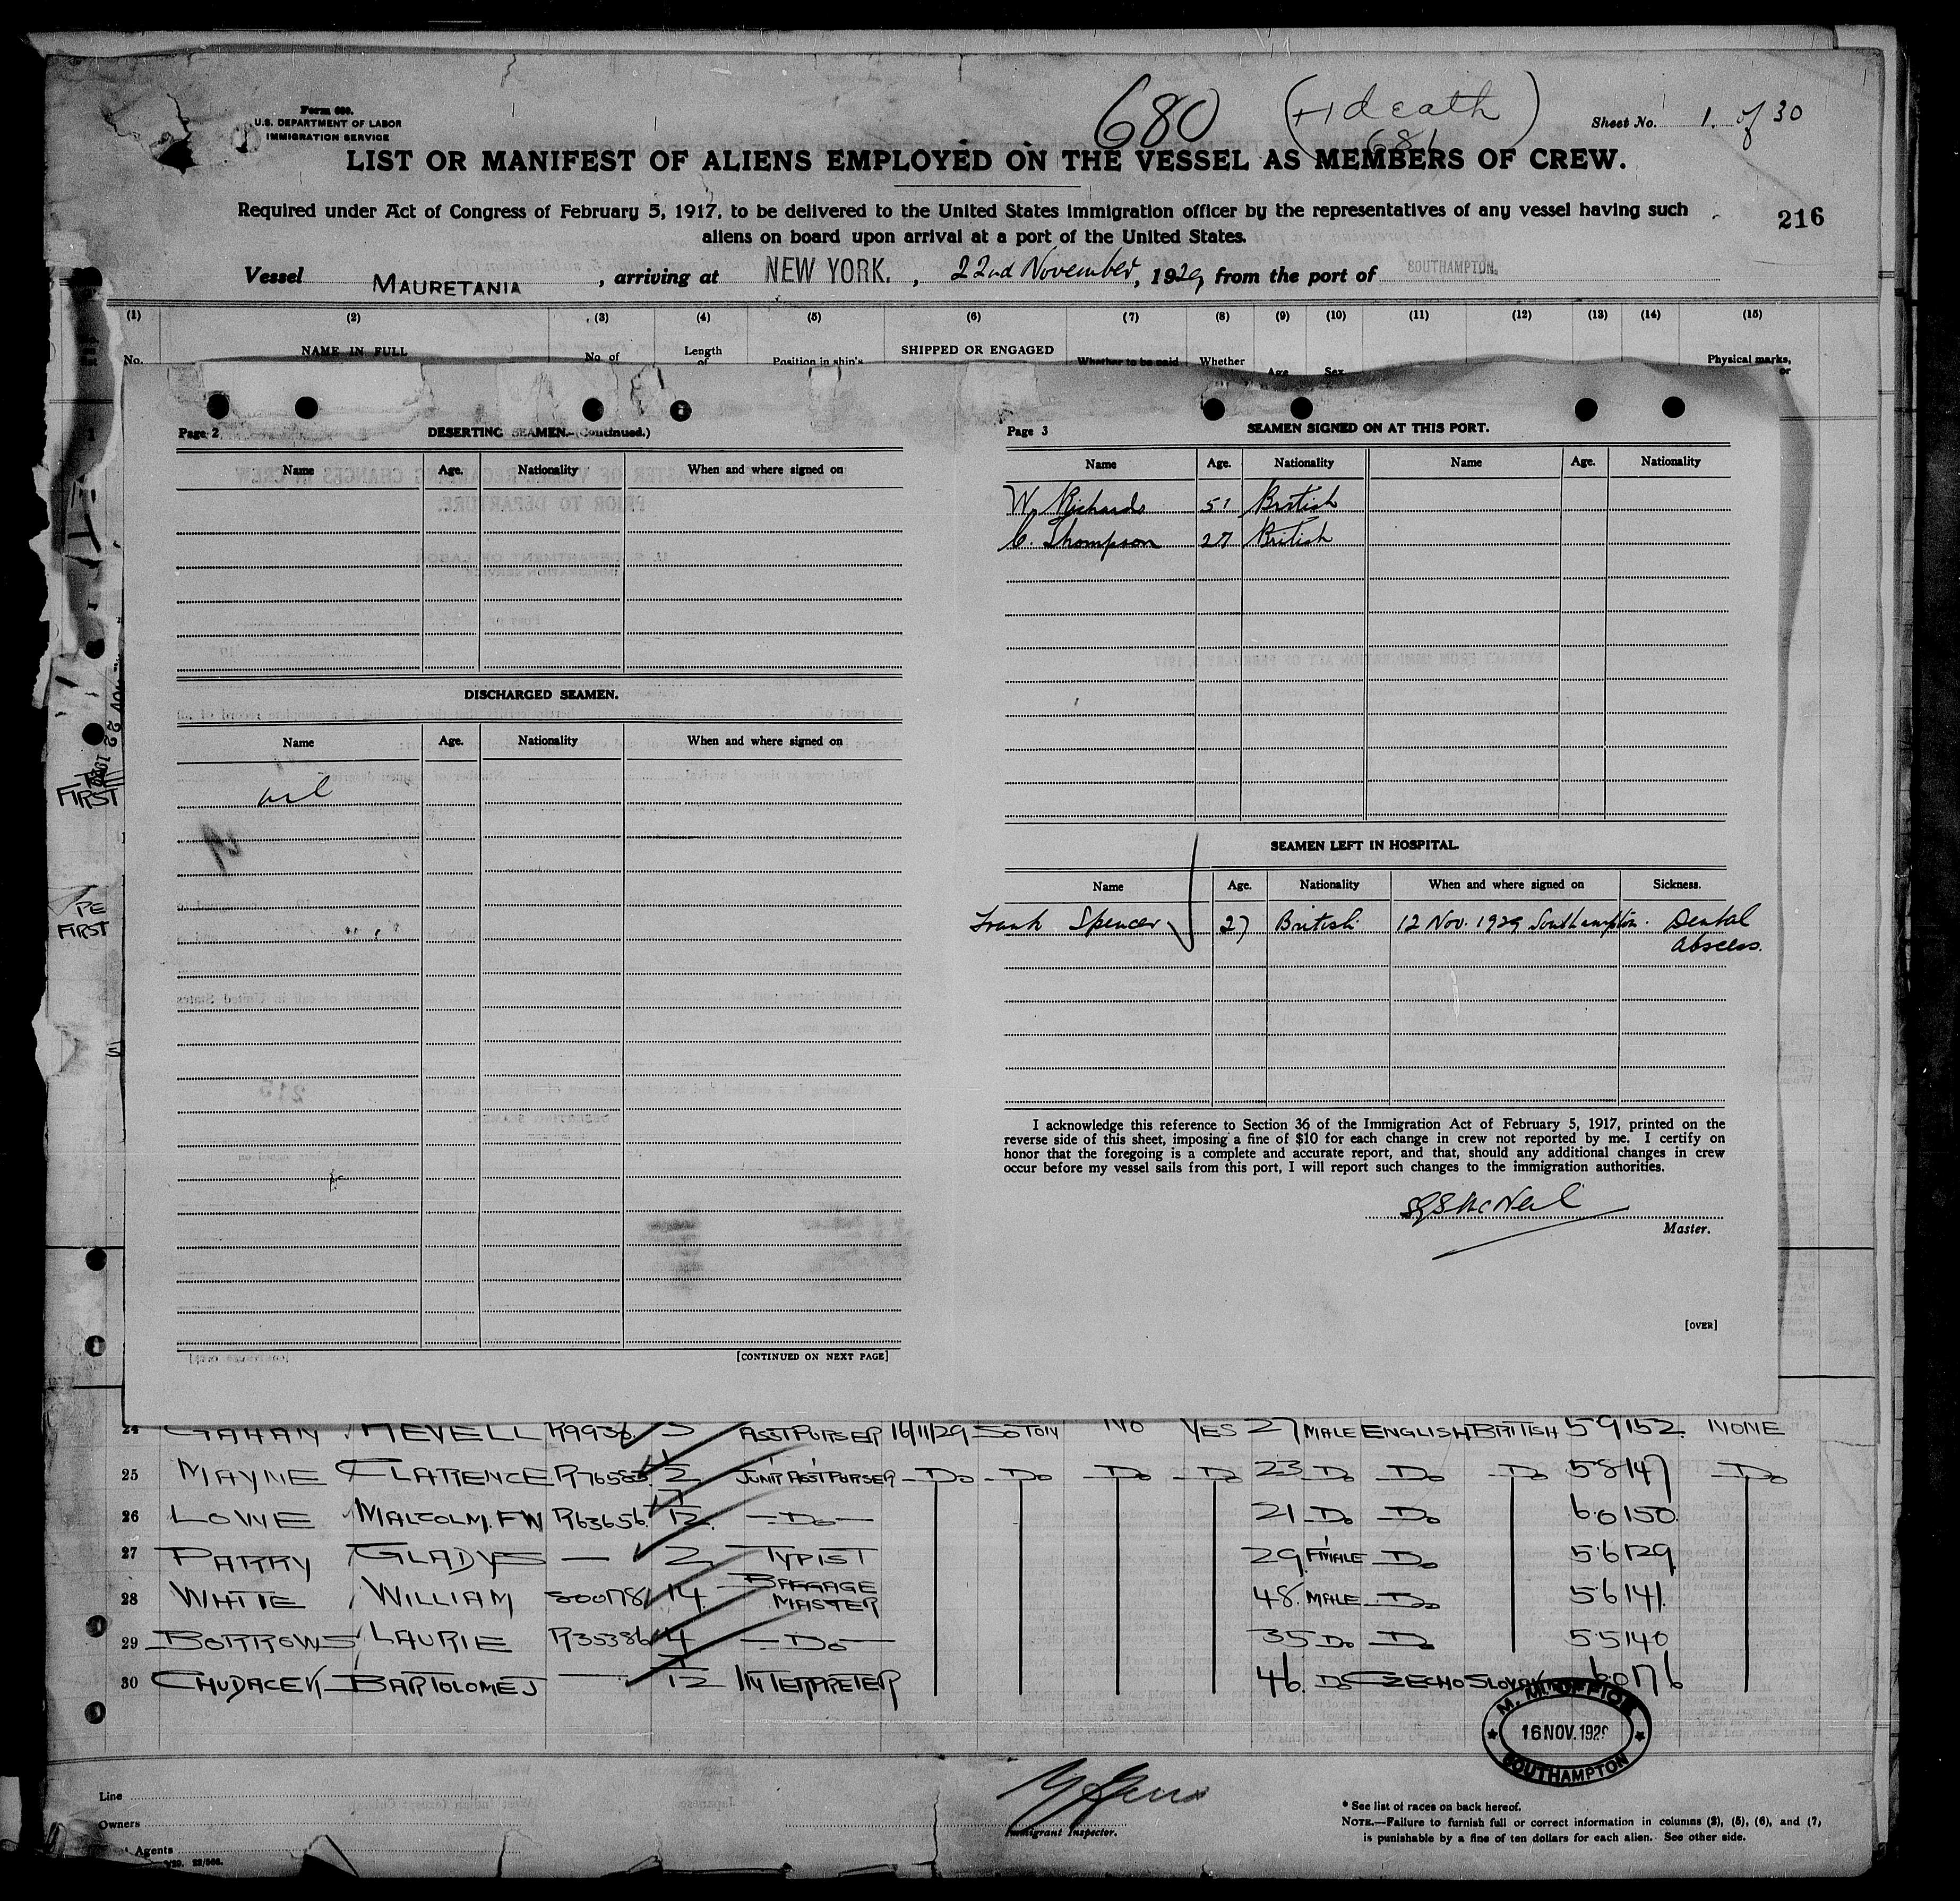 Form 680.
U.S. DEPARTMENT OF LABOR
IMMIGRATION SERVICE
680 (+1 death)
681
Sheet No. 1. of 30
LIST OR MANIFEST OF ALIENS EMPLOYED ON THE VESSEL AS MEMBERS OF CREW.
Required under Act of Congress of February 5, 1917, to be delivered to the United States immigration officer by the representatives of any vessel having such
aliens on board upon arrival at a port of the United States.
216
Vessel MAURETANIA, arriving at NEW YORK., 22nd November, 1929, from the port of SOUTHAMPTON.
(1) (2) (3) (4) (5) (6) (7) (8) (9) (10) (11) (12) (13) (14) (15)
No. NAME IN FULL No. of Length of Position in ship's SHIPPED OR ENGAGED Whether to be paid Whether Age Sex Physical marks, or
Page 2 DESERTING SEAMEN.—(Continued.)
Name Age. Nationality When and where signed on
DISCHARGED SEAMEN.
Name Age. Nationality When and where signed on
nil
[CONTINUED ON NEXT PAGE]
Page 3 SEAMEN SIGNED ON AT THIS PORT.
Name Age. Nationality Name Age. Nationality
W. Richards 51 British
C. Thompson 27 British
SEAMEN LEFT IN HOSPITAL.
Name Age. Nationality When and where signed on Sickness.
Frank Spencer 27 British 12 Nov. 1929 Southampton. Dental
abscess.
I acknowledge this reference to Section 36 of the Immigration Act of February 5, 1917, printed on the
reverse side of this sheet, imposing a fine of $10 for each change in crew not reported by me. I certify on
honor that the foregoing is a complete and accurate report, and that, should any additional changes in crew
occur before my vessel sails from this port, I will report such changes to the immigration authorities.
McNeil
Master.
[OVER]
NOV 22 1929
FIRST
FIRST
24 GAHAN REVELL R9936 5 ASST PURSER 16/11/29 SOTON NO YES 27 MALE ENGLISH BRITISH 59 152. NONE
25 MAYNE CLARENCE R76583 JUNR ASST PURSER Do Do Do Do 23 Do Do Do 58 147 Do
26 LOWE MALCOLM. F W R63656 Do 21 Do Do 60 150
27 PARRY GLADYS — 2 TYPIST 29 FEMALE Do 56 129
28 WHITE WILLIAM 800178 14 BAGGAGE
MASTER 48 MALE Do 56 141.
29 BORROWS LAURIE R35386 4 Do 35 Do Do 55 140
30 CHUDACEK BARTOLOMEJ — INTERPRETER 46. Do CZECHO SLOVAK 60 176
M. M. OFFICE
16 NOV. 1929
SOUTHAMPTON
Line
Owners
Agents
Immigrant Inspector.
* See list of races on back hereof.
NOTE.—Failure to furnish full or correct information in columns (2), (5), (6), and (7),
is punishable by a fine of ten dollars for each alien. See other side.